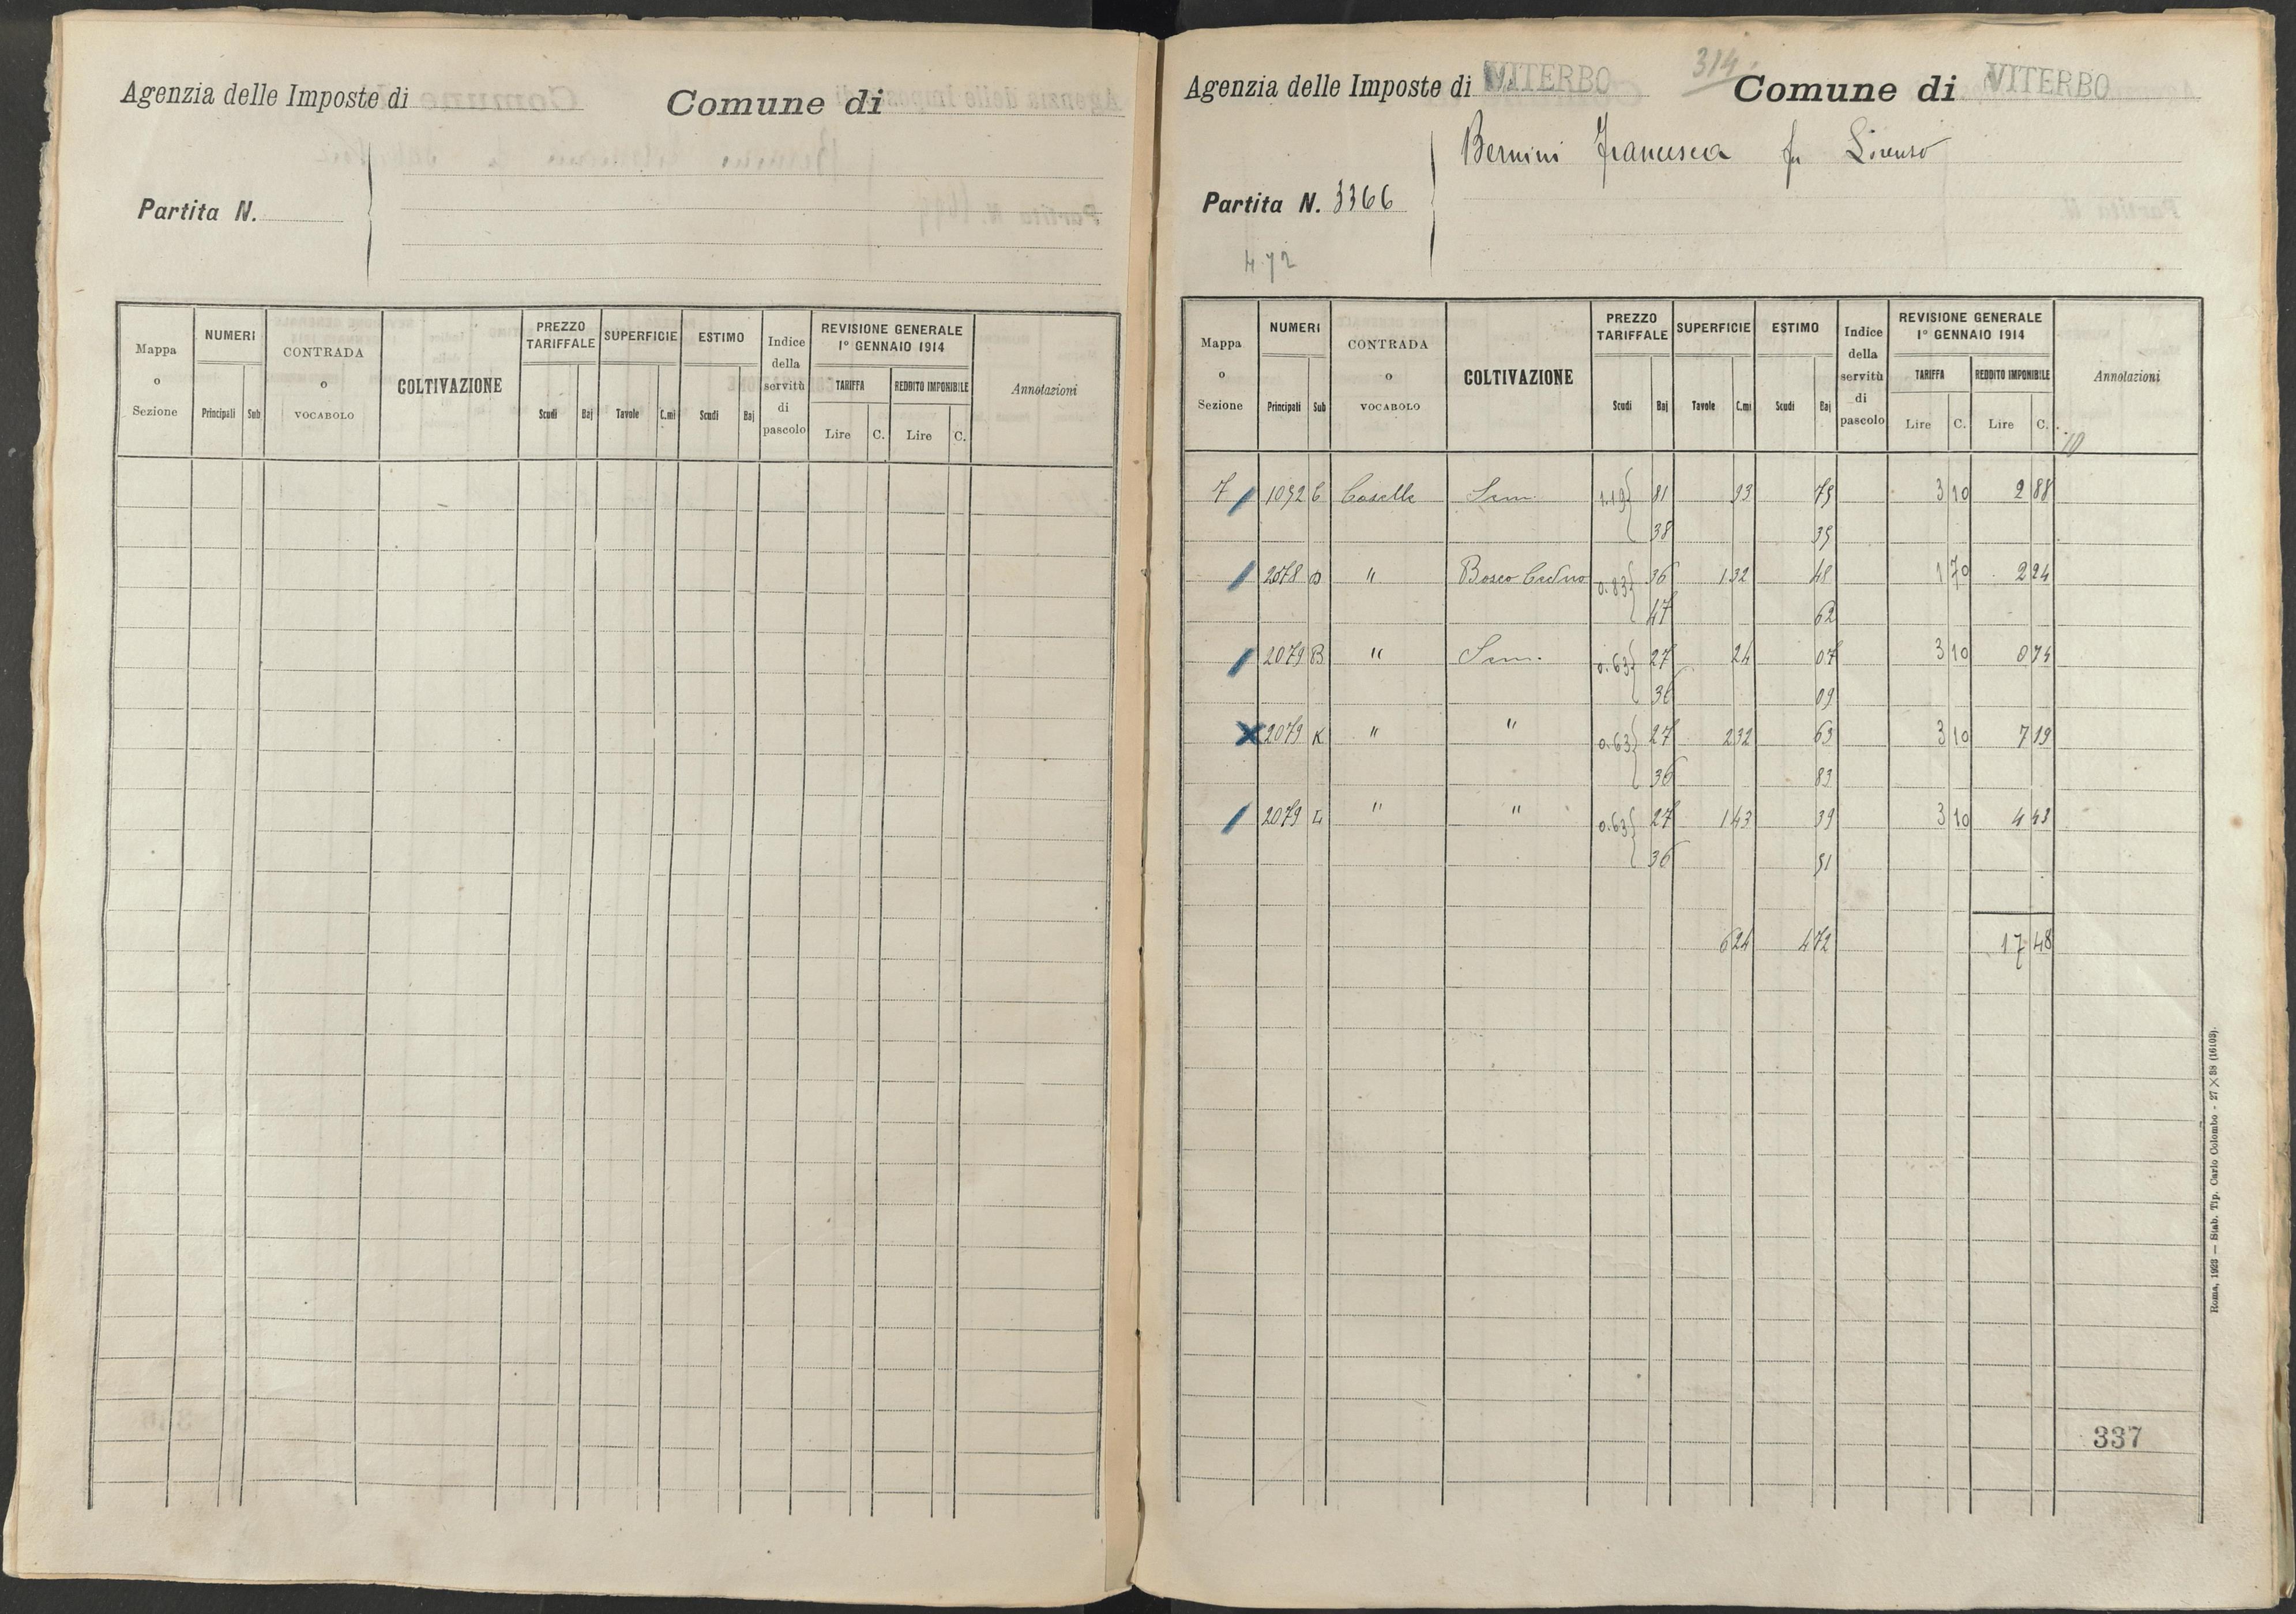 Agenzia delle Imposte di
Comune di
Partita N.
Mappa o Sezione
NUMERI
Principali Sub
CONTRADA o VOCABOLO
COLTIVAZIONE
PREZZO TARIFFALE
Scudi Baj
SUPERFICIE
Tavole C.mi
ESTIMO
Scudi Baj
Indice della servitù di pascolo
REVISIONE GENERALE
1° GENNAIO 1914
TARIFFA REDDITO IMPONIBILE
Lire C. Lire C.
Annotazioni
314.
Agenzia delle Imposte di VITERBO Comune di VITERBO
Bernini Francesca fu Lorenzo
Partita N. 3366
472
Mappa o Sezione
NUMERI
Principali Sub
CONTRADA o VOCABOLO
COLTIVAZIONE
PREZZO TARIFFALE
Scudi Baj
SUPERFICIE
Tavole C.mi
ESTIMO
Scudi Baj
Indice della servitù di pascolo
REVISIONE GENERALE
1° GENNAIO 1914
TARIFFA REDDITO IMPONIBILE
Lire C. Lire C.
Annotazioni
10
7 1092 C Caselle Sem. 1.19 81 93 75 3 10 2 88
38 35
2078 D " Bosco Ceduo 0.83 36 132 48 1 70 2 24
47 62
2079 B " Sem. 0.63 27 24 07 3 10 0 74
36 09
2079 K " " 0.63 27 232 63 3 10 7 19
36 83
2079 L " " 0.63 27 143 39 3 10 4 43
36 51
624 472 17 48
337
Roma, 1923 — Stab. Tip. Carlo Colombo - 27 × 38 (16103).